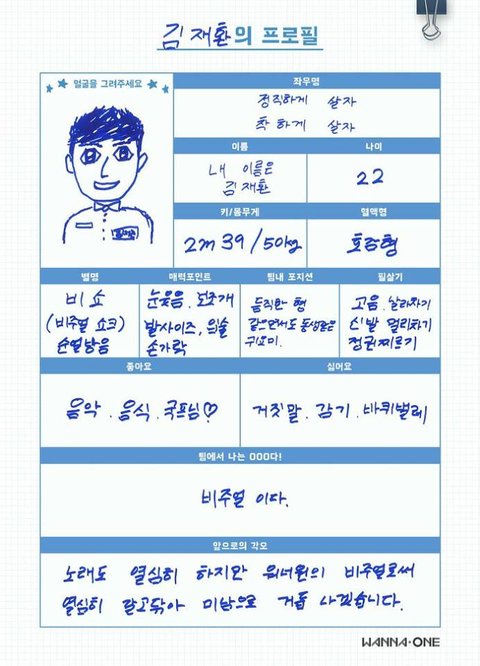 김재환의 프로필
얼굴을 그려주세요
좌우명
정직하게 살자
착하게 살자
이름
나이
내 이름은
김재환
22
키/몸무게
혈액형
2m 39 / 50kg
호랑형
별명
매력포인트
팀내 포지션
필살기
비쇼
(비주얼 쇼크)
눈웃음. 보조개
발사이즈, 입술
손가락
듬직한 형
같으면서도 동생같은
귀요미.
고음. 날라차기
신발 멀리차기
정권찌르기
좋아요
싫어요
음악. 음식. 국프님♡
거짓말. 감기. 바퀴벌레
팀에서 나는 OOO다!
비주얼 이다.
앞으로의 각오
노래도 열심히 하지만 워너원의 비주얼로써
열심히 갈고닦아 미남으로 거듭 나겠습니다.
WANNA·ONE